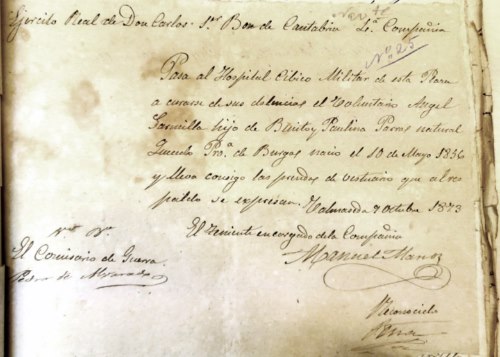 Ejército Real de Don Carlos - 1er Bon de Cantabria 4a Compañia
No 25
Pasa al Hospital Cibico Militar de esta Plaza
a curarse de sus dolencias el Voluntario Angel
hijo de Benito y Paulina Parras natural
Pro.a de Burgos nacio el 10 de Mayo 1856
y lleva consigo las prendas de vestuario que al res
paldo se expresan. Valmaseda 7 Octubre 1873
El Teniente encargado de la Compañia
Manuel
Vto Bo
El Comisario de Guerra
de Alvarado
Reconocido